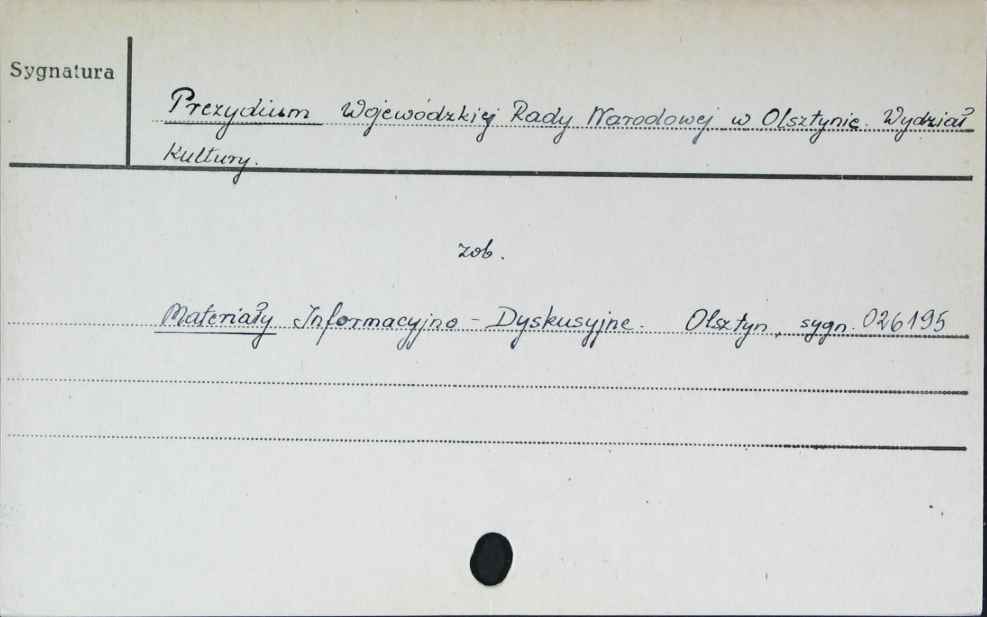 Sygnatura
Prezydium Wojewódzkiej Rady Narodowej w Olsztynie. Wydział
Kultury.
zob.
Materiały Informacyjno - Dyskusyjne. Olsztyn, sygn. 026195